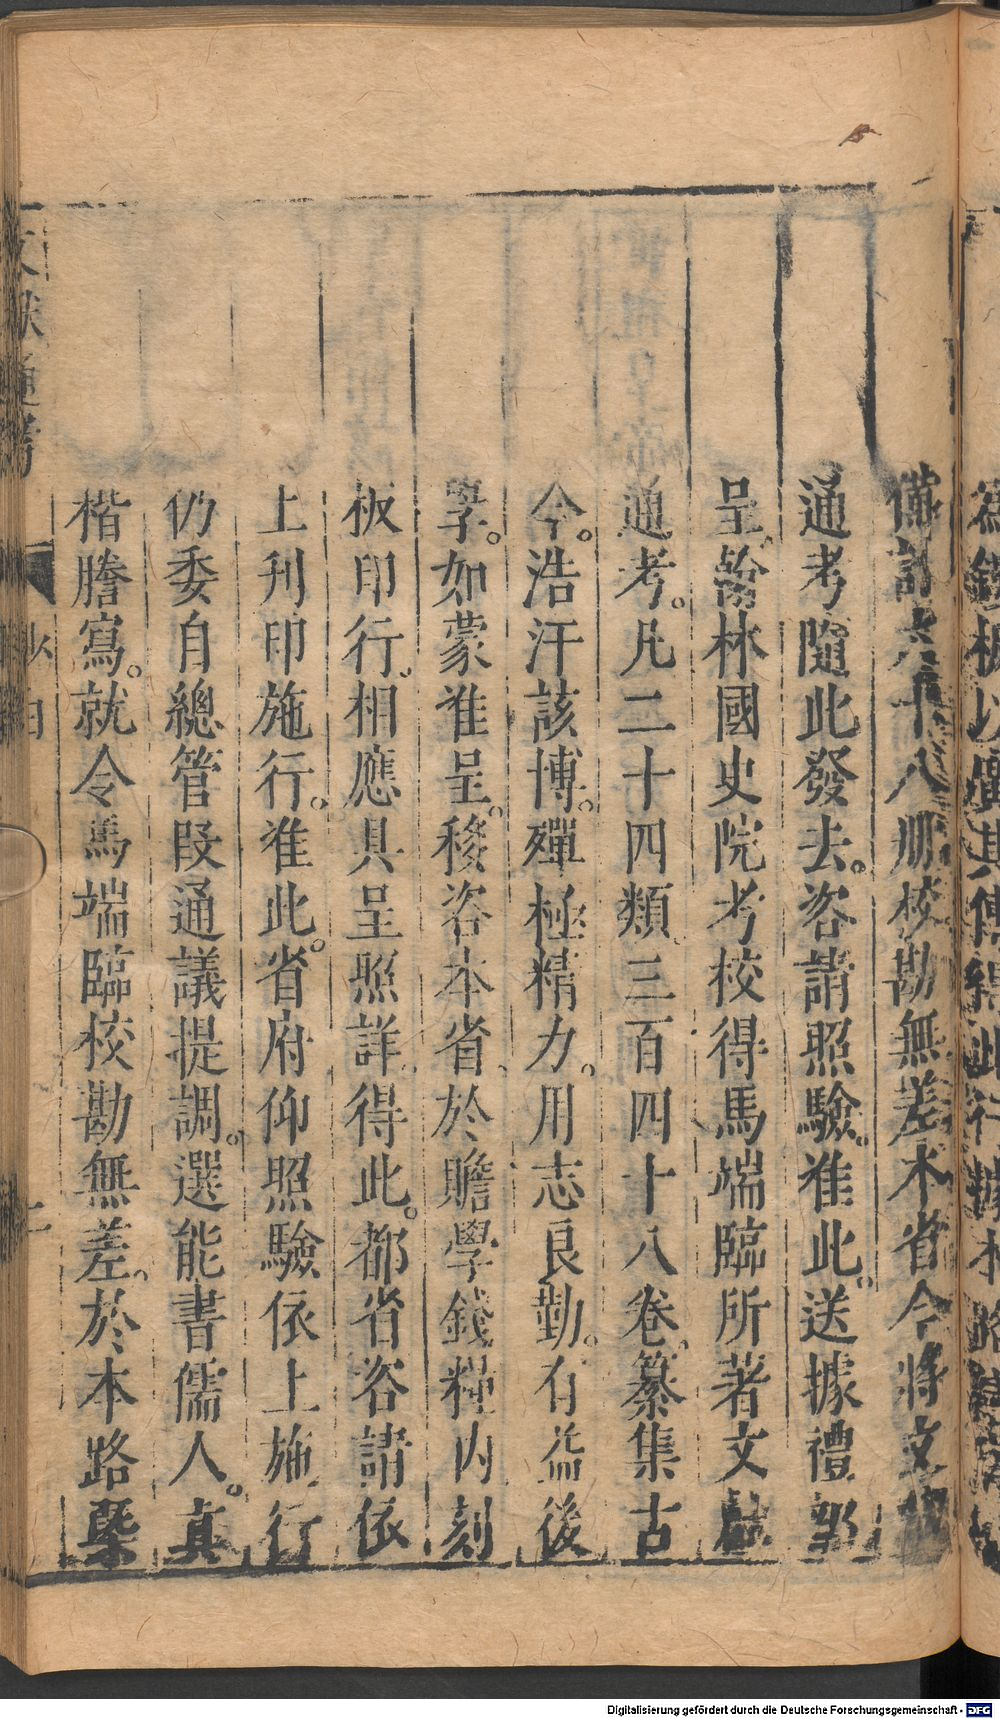 計六十八册校勘無差本省今將文獻
通考隨此發去咨請照驗准此送據禮部
呈翰林國史院考校得馬端臨所著文獻
通考凡二十四類三百四十八卷纂集古
今浩汗該博殫極精力用志良勤有益後
學如蒙准呈移咨本省於贍學錢糧內刻
板印行相應具呈照詳得此都省咨請依
上刊印施行准此省府仰照驗依上施行
仍委自總管段通議提調選能書儒人真
楷謄寫就令馬端臨校勘無差於本路槩
文獻通考
Digitalisierung gefördert durch die Deutsche Forschungsgemeinschaft - DFG